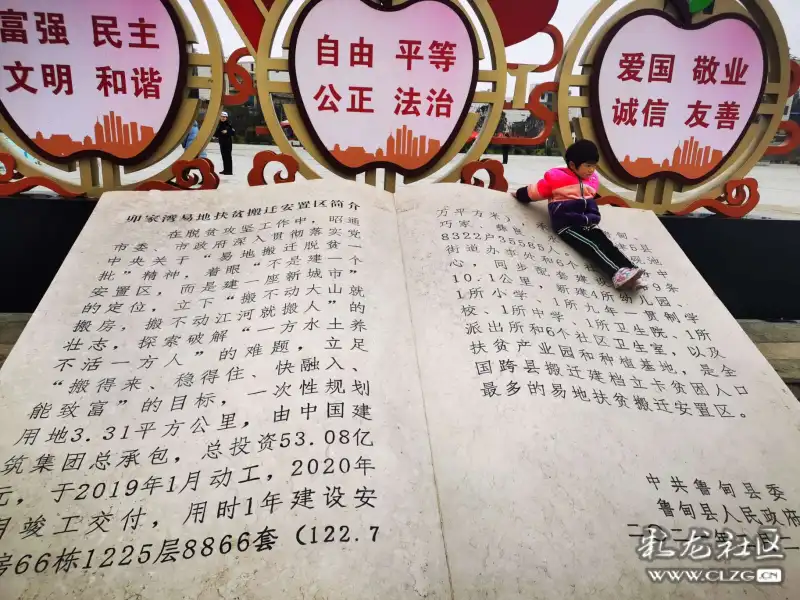 富强 民主
文明 和谐
自由 平等
公正 法治
爱国 敬业
诚信 友善
卯家湾易地扶贫搬迁安置区简介
在脱贫攻坚工作中，昭通
市委、市政府深入贯彻落实党
中央关于“易地搬迁脱贫一
批”精神，着眼“不是建一个
安置区，而是建一座新城市”
的定位，立下“搬不动大山就
搬房，搬不动江河就搬人”的
壮志，探索破解“一方水土养
不活一方人”的难题，立足
“搬得来、稳得住、快融入、
能致富”的目标，一次性规划
用地3.31平方公里，由中国建
筑集团总承包，总投资53.08亿
元，于2019年1月动工，2020年
月竣工交付，用时1年建设安
房66栋1225层8866套（122.7
万平方米）
巧家、彝良 5县
8322户35585人
街道办事处和6个社区
心，同步配套建设 9条
10.1公里，新建4所幼儿园、
1所小学、1所九年一贯制学
校、1所中学、1所卫生院、1所
派出所和6个社区卫生室，以及
扶贫产业园和种植基地，是全
国跨县搬迁建档立卡贫困人口
最多的易地扶贫搬迁安置区。
中共鲁甸县委
鲁甸县人民政府
二〇二
彩龙社区
WWW.CLZG.CN